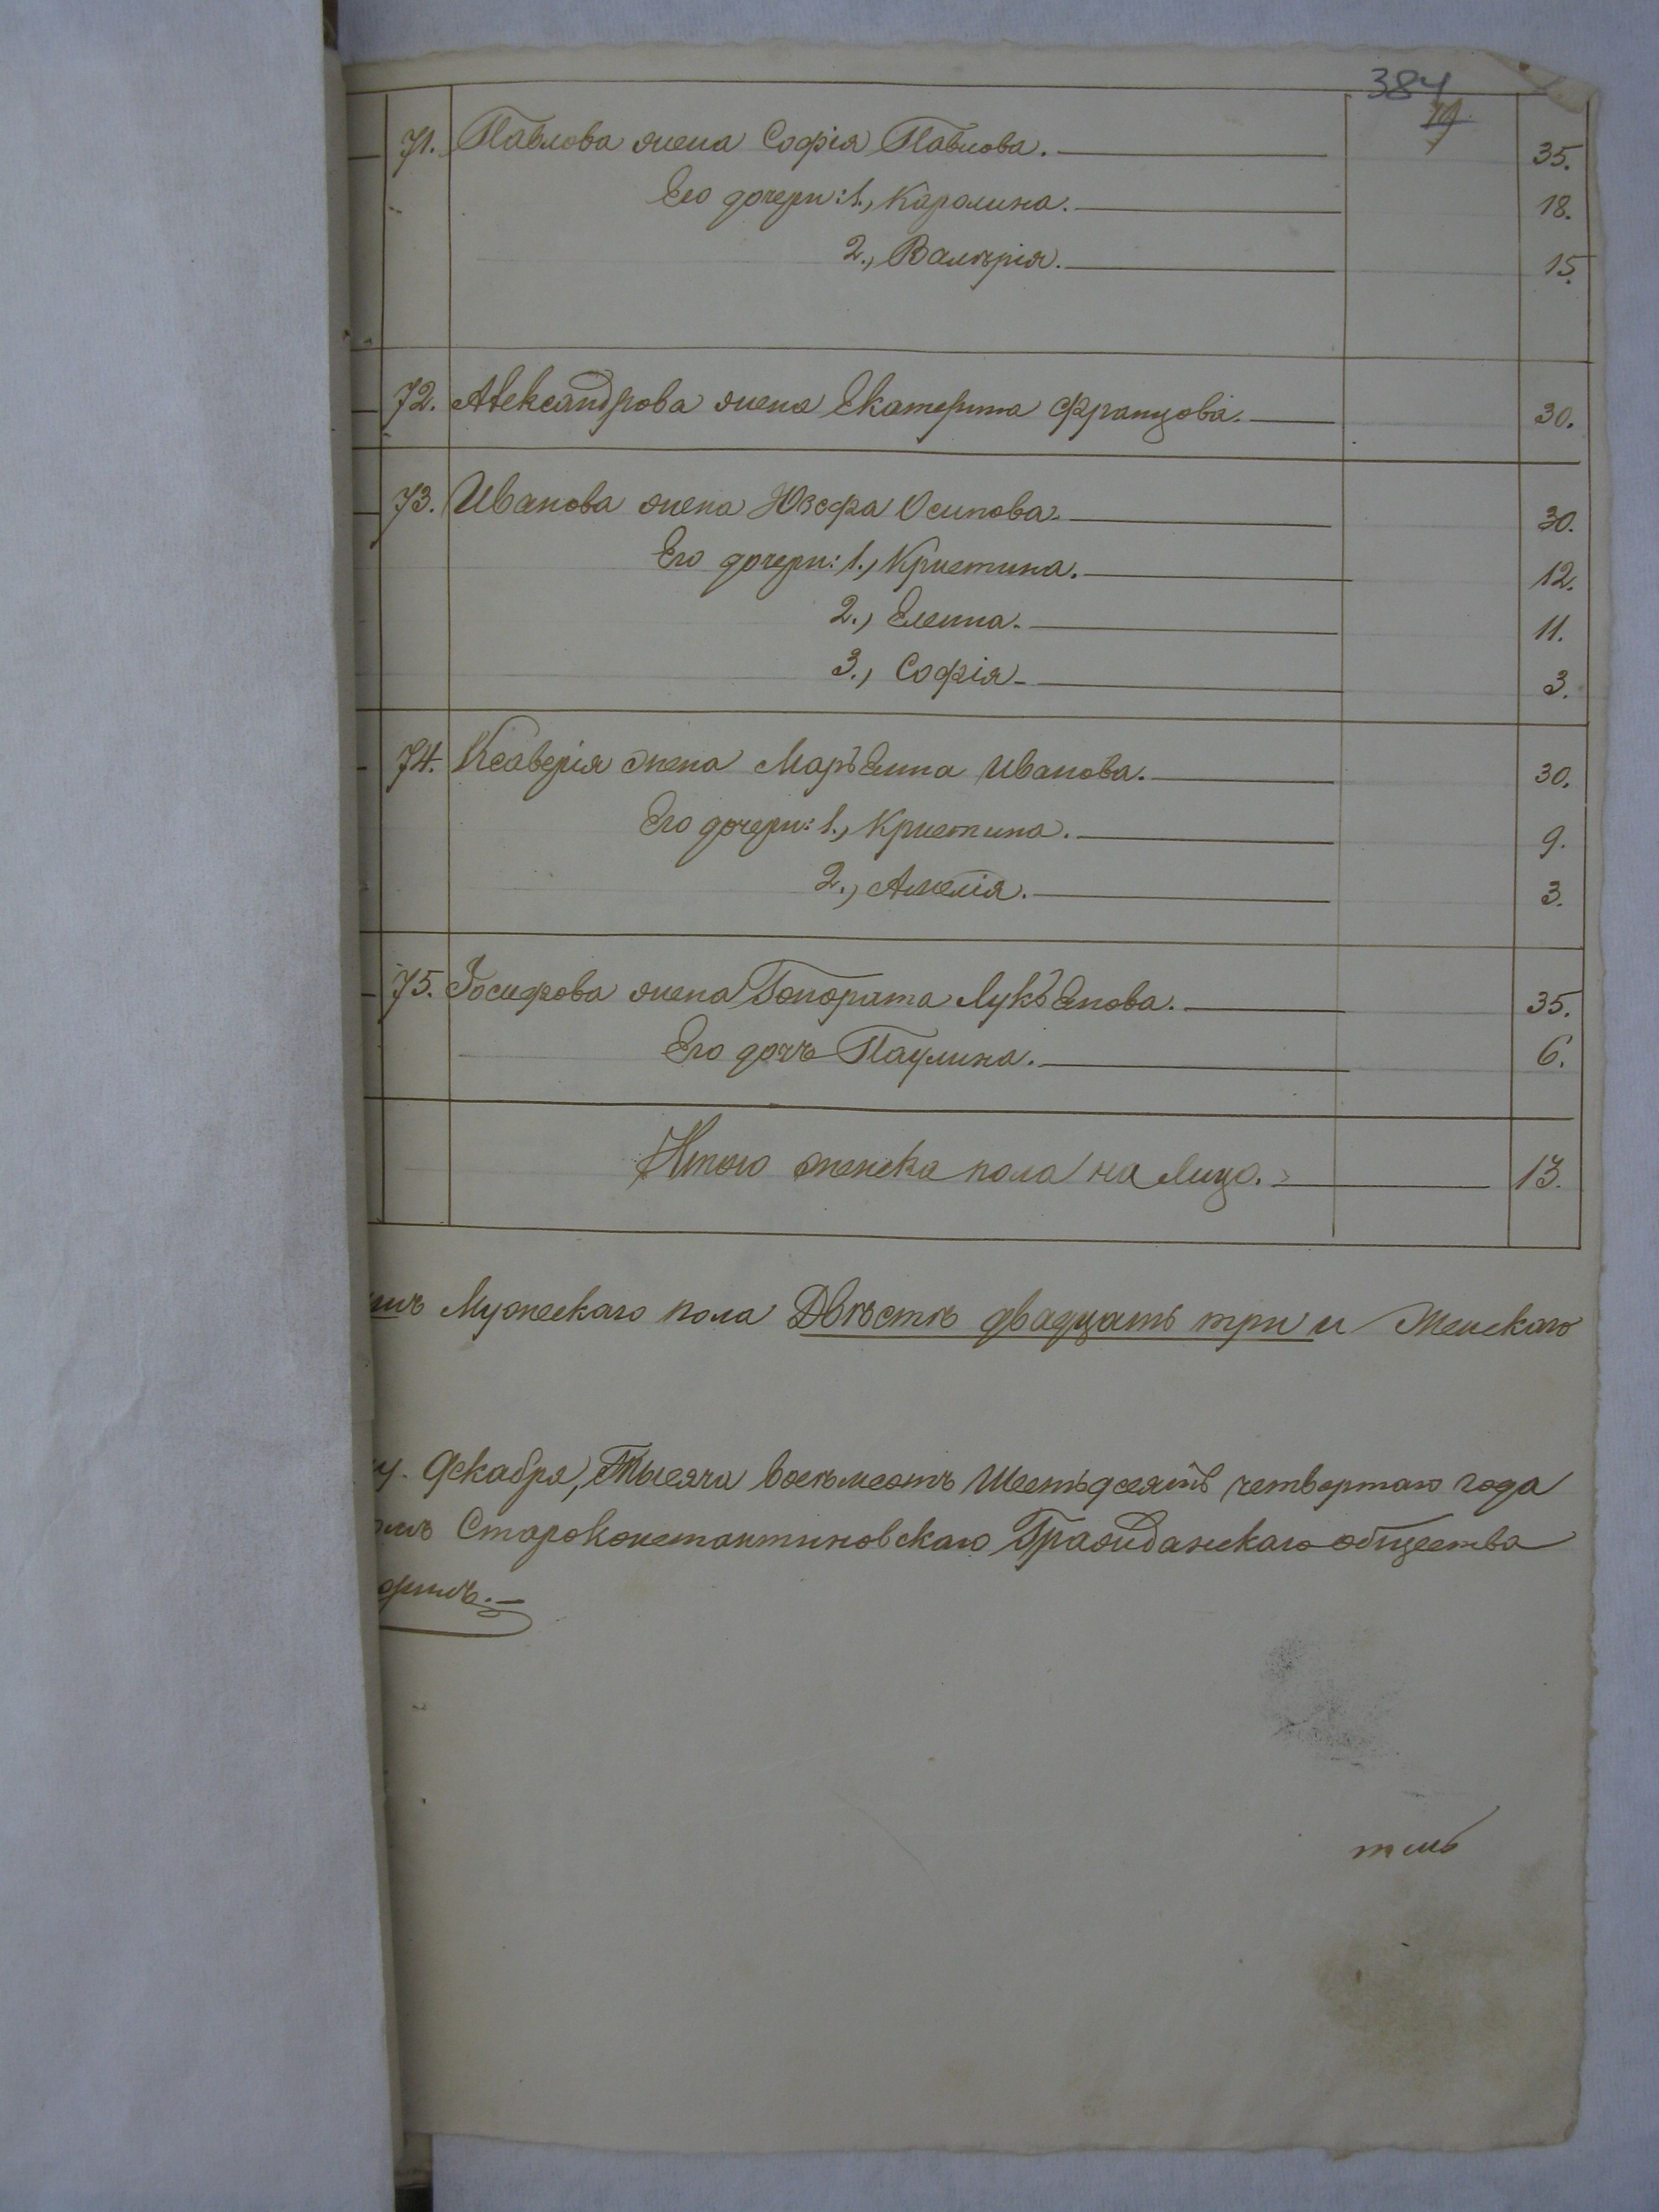 384
71. Павлова жена Софія Павлова. 35.
Его дочери: 1., Каролина. 18.
2., Валѣрія. 15.
72. Александрова жена Екатерина Францова. 30.
73. Иванова жена Юзефа Осипова. 30.
Его дочери: 1., Кристина. 12.
2., Елена. 11.
3., Софія 3.
74. Ксаверія жена Маръянна Иванова. 30.
Его дочери: 1., Кристина. 9.
2., Амелія. 3.
75. Іосифова жена Гонората Лукъянова. 35.
Его дочь Паулина. 6.
Итого женска пола на лицо. 13.
Мужескаго пола Двѣстѣ двадцать три и Женскаго
Декабря, Тысяча восемьсотъ Шестьдесятъ четвертаго года
Староконстантиновскаго Гражданскаго общества